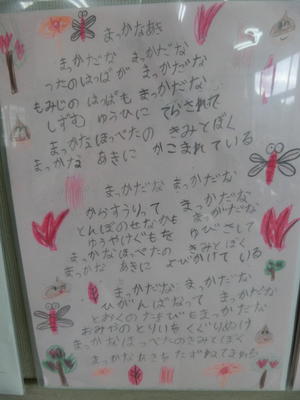 まっかなあき
まっかだな まっかだな
つたのはっぱが まっかだな
もみじの はっぱも まっかだな
しずむ ゆうひに てらされて
まっかなほっぺたの きみとぼく
まっかな あきに かこまれている
まっかだな まっかだな
からすうりって まっかだな
とんぼのせなかも まっかだな
ゆうやけぐもを ゆびさして
まっかなほっぺたの きみとぼく
まっかな あきに よびかけて いる
まっかだな まっかだな
ひがんばなって まっかだな
とおくの たきびも まっかだな
おみやの とりいを くぐりぬけ
まっかなほっぺたのきみとぼく
まっかなあきを たずねてまわる